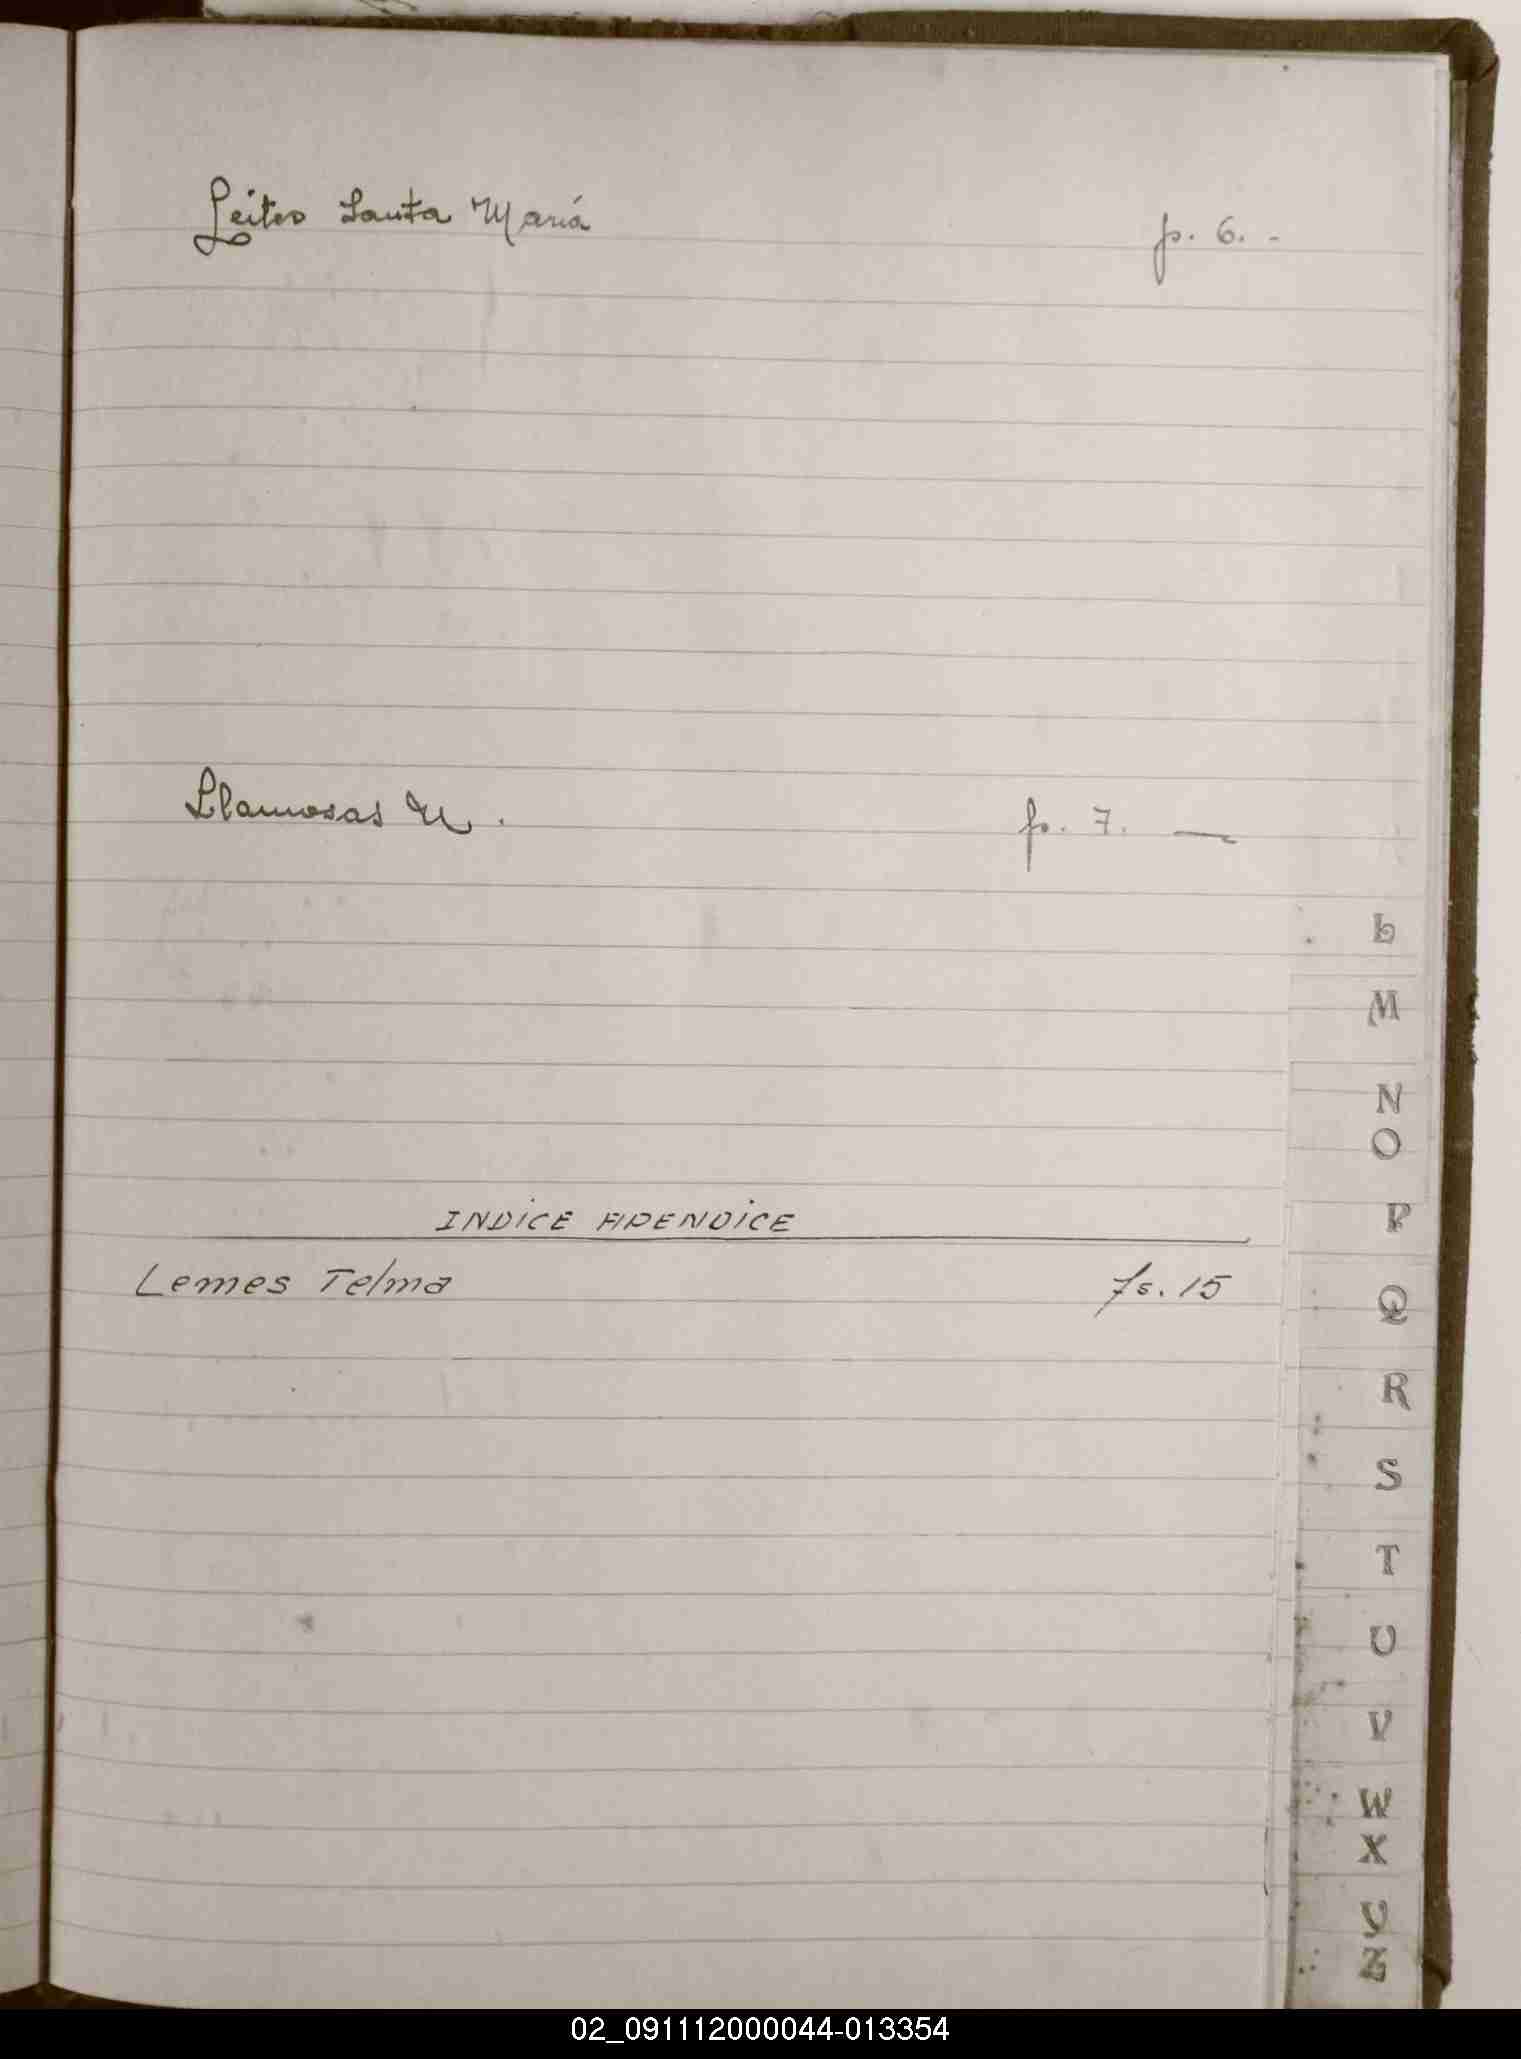 Leites Santa María p. 6. -
Llamosas M. p. 7. —
INDICE APENDICE
Lemes Telma fs. 15
L
M
N
O
P
Q
R
S
T
U
V
W
X
Y
Z
02_091112000044-013354